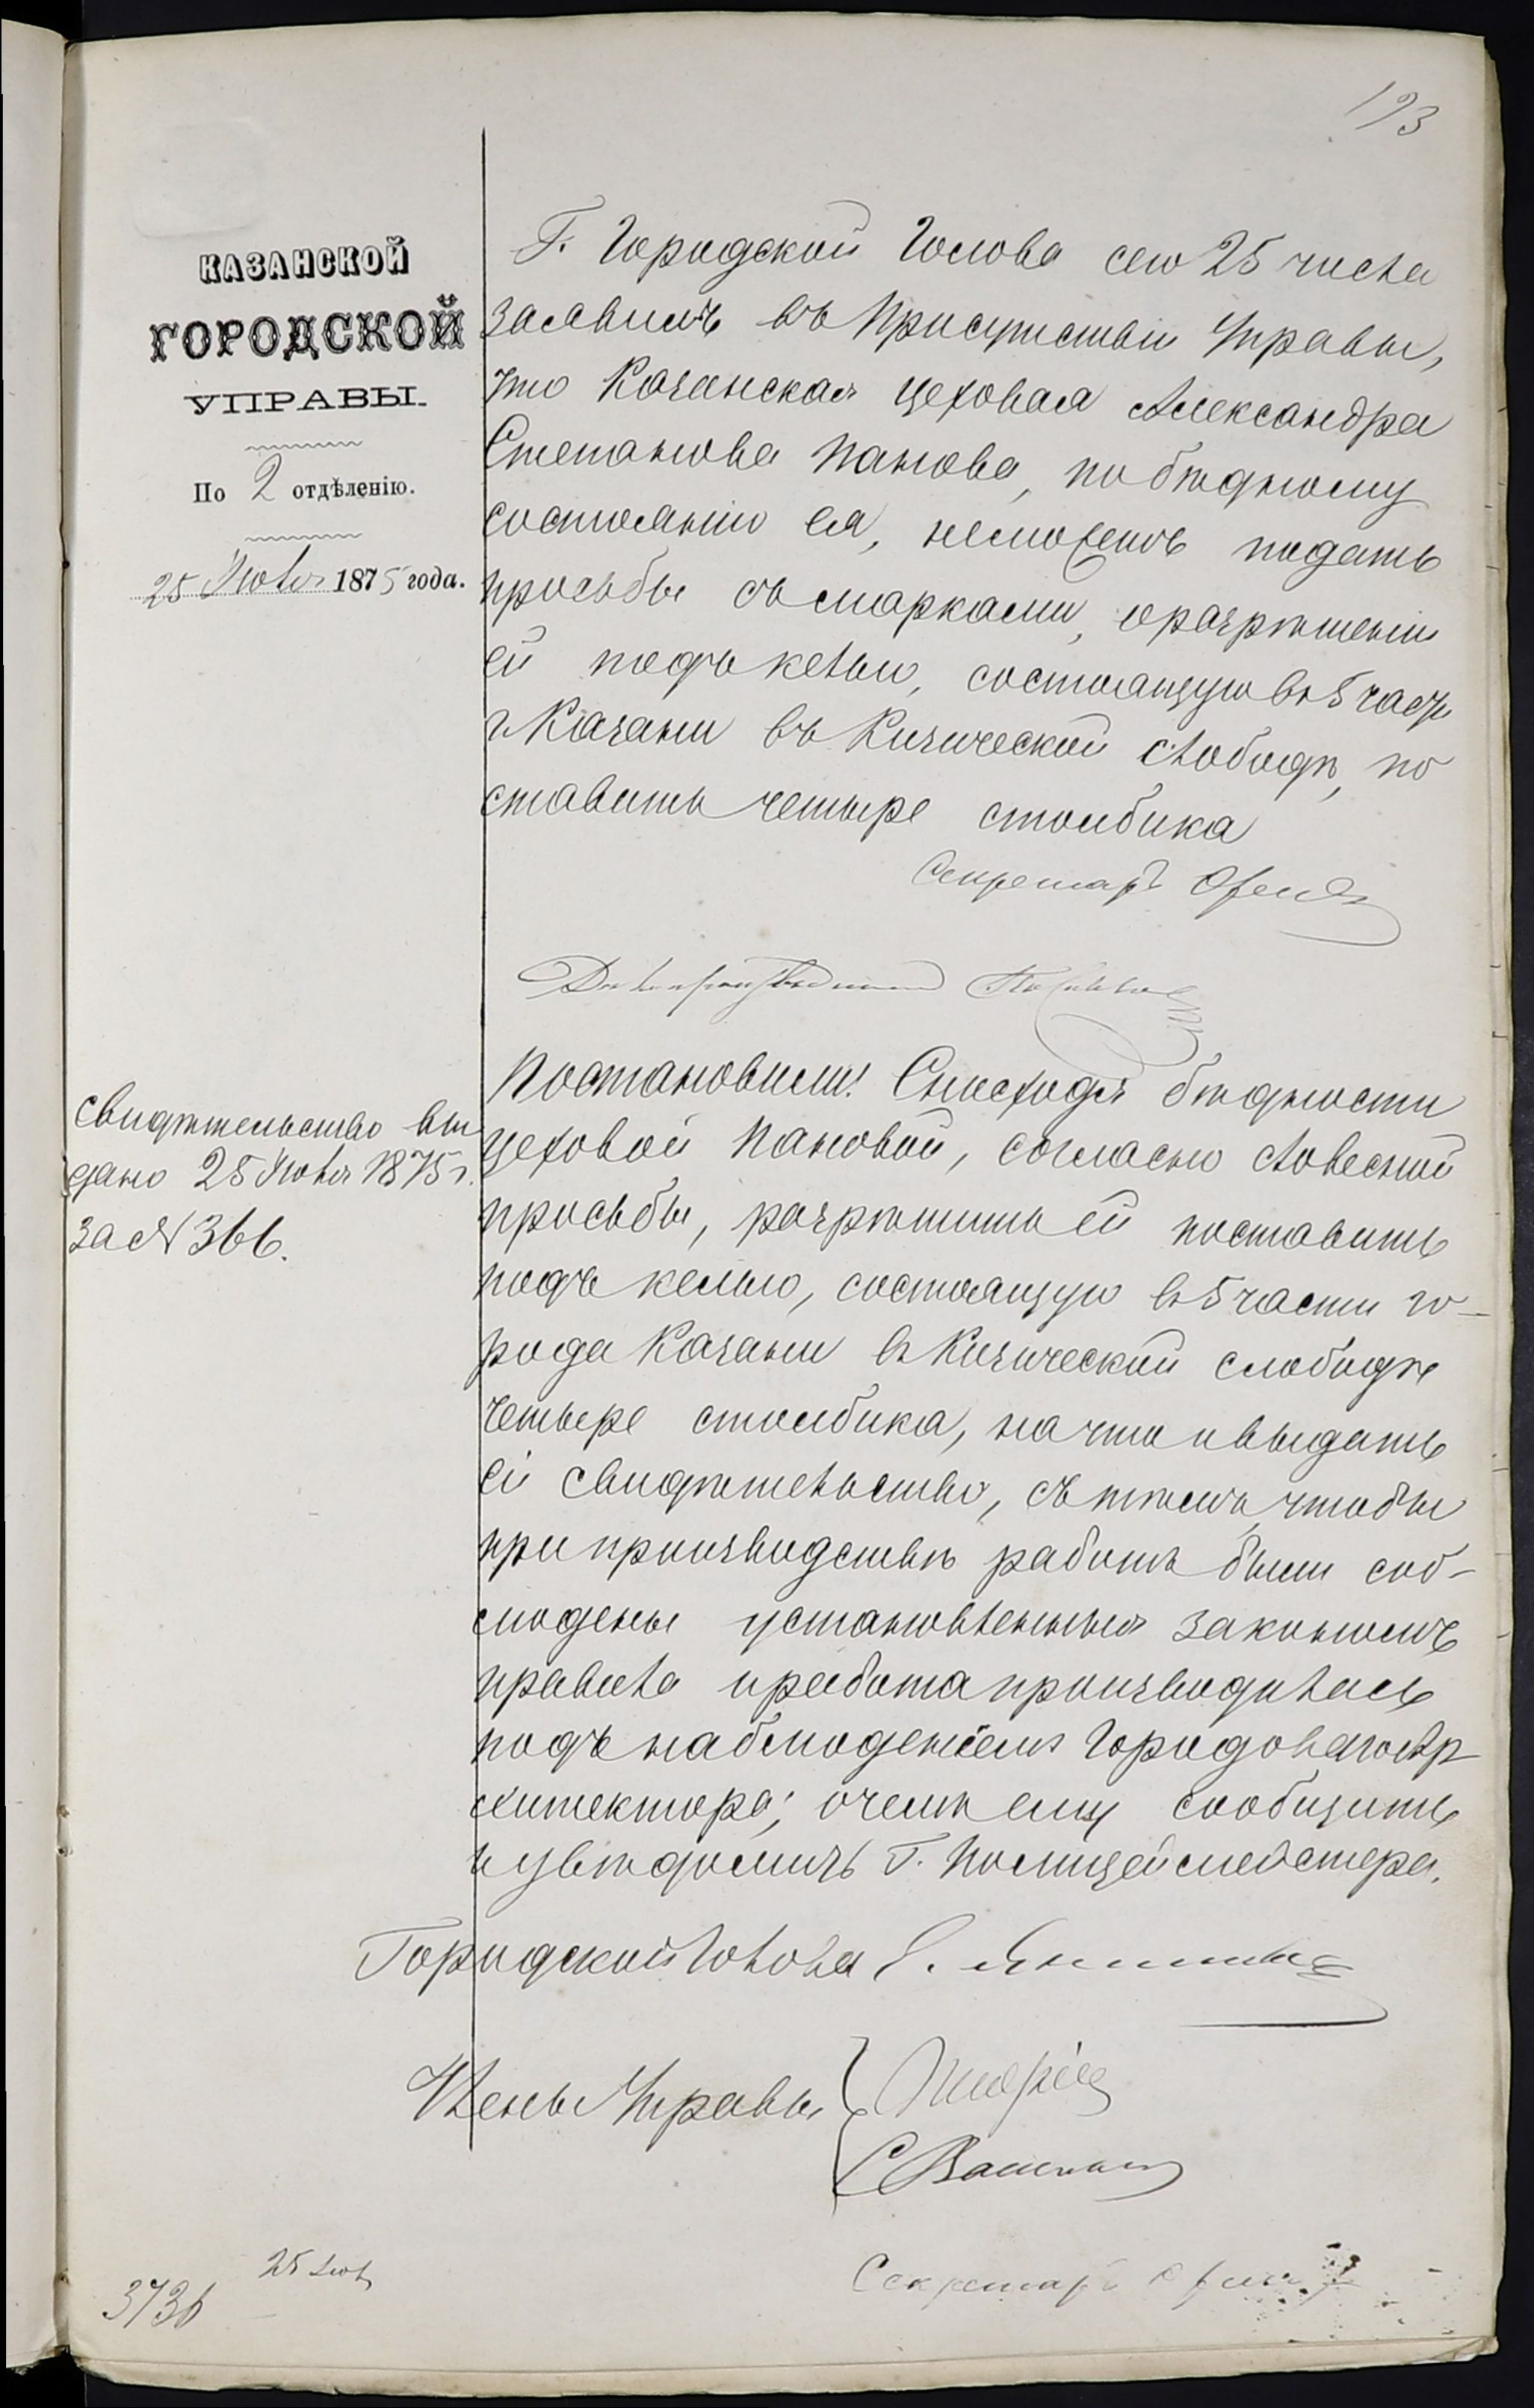 193
КАЗАНСКОЙ
ГОРОДСКОЙ
УПРАВЫ.
По 2 отдѣленію.
25 Іюля 1875 года.
Г. Городской Голова сего 25 числа
заявилъ въ Присутствіи Управы,
что Казанская цеховая Александра
Степанова Панова, по бѣдному
состоянію ея, неможетъ подать
просьбы съ марками, о разрѣшеніи
ей подъ келью, состоящую въ 5 части
г. Казани въ Кизической слободѣ, по
ставить четыре столбика
Секретарь
Дѣлопроизводитель
Постановили: Снисходя бѣдности
цеховой Пановой, согласно словесной
просьбы, разрѣшить ей поставить
подъ келью, состоящую въ 5 части го-
рода Казани въ Кизической слободѣ
четыре столбика, на что и выдать
ей свидѣтельство, съ тѣмъ, чтобы
при производствѣ работъ были соб-
людены установленныя закономъ
правила и работа производилась
подъ наблюденіемъ Городоваго Ар-
хитектора; о чемъ ему сообщить
и увѣдомить Г. Полицеймейстера.
свидѣтельство вы
дано 25 Іюля 1875 г.
за № 366.
Городской Голова Е.
Члены Управы
С
Секретарь
25 Іюля
3736